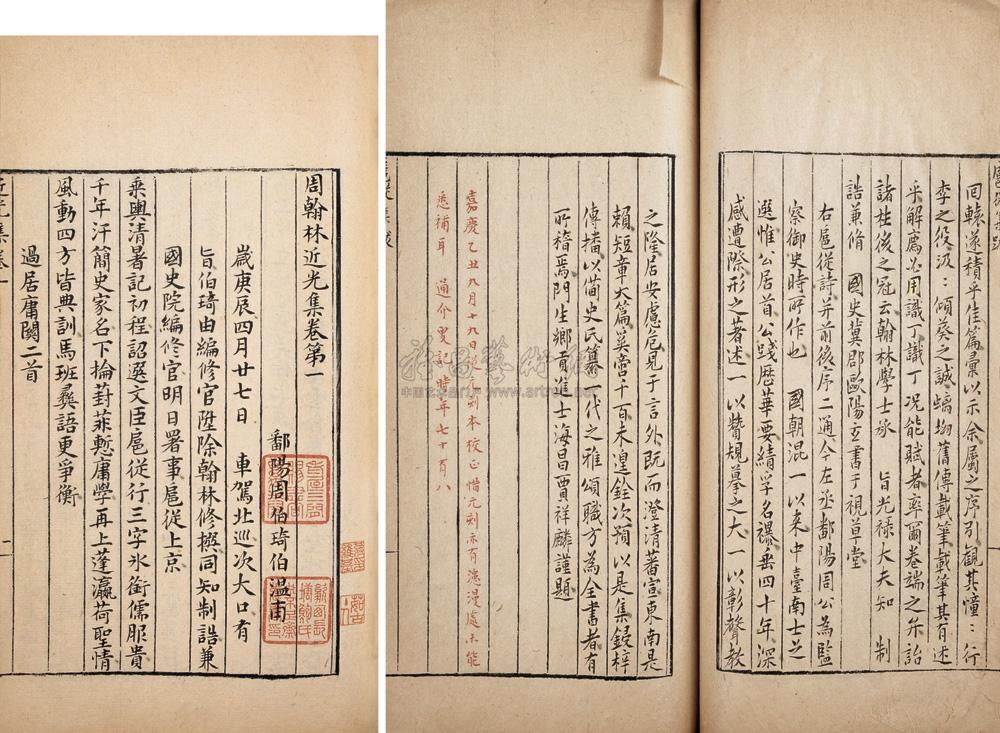 周翰林近光集卷第一
鄱陽周伯琦伯溫甫
歲庚辰四月廿七日　車駕北巡次大口有
旨伯琦由編修官陞除翰林修撰同知制誥兼
國史院編修官明日署事扈從上京
乘輿清暑記初程詔選文臣扈從行三字氷銜儒服貴
千年汗簡史家名下掄葑菲慙庸學再上蓬瀛荷聖情
風動四方皆典訓馬班彛語更爭衡
過居庸關二首
回轅遂積平佳篇彙以示余属之序引觀其憧：行
李之役汲：傾葵之誠螭坳舊傳載筆載筆其有述
乎解廌必用識丁識丁况能賦者率爾卷端之弁詒
諸柱後之冠云翰林學士承　旨光禄大夫知　制
誥兼脩　國史冀郡歐陽玄書于視草堂
右扈從詩并前後序二通今左丞鄱陽周公為監
察御史時所作也　國朝混一以来中臺南士之
選惟公居首公踐歴華要績學名瀑垂四十年深
感遭際形之著述一以贊規摹之大一以彰聲教
之隆居安慮危見于言外既而澄清蕃宣東南是
賴短章大篇奚啻千百未遑銓次預以是集鋟梓
傳播以備史氏纂一代之雅頌職方為全書者有
所稽焉門生鄉貢進士海昌賈祥麟謹題
嘉慶乙丑九月十九日
元刻本校正惜元刻亦有漶漫處未能
悉補耳　通介叟記時年七十有八